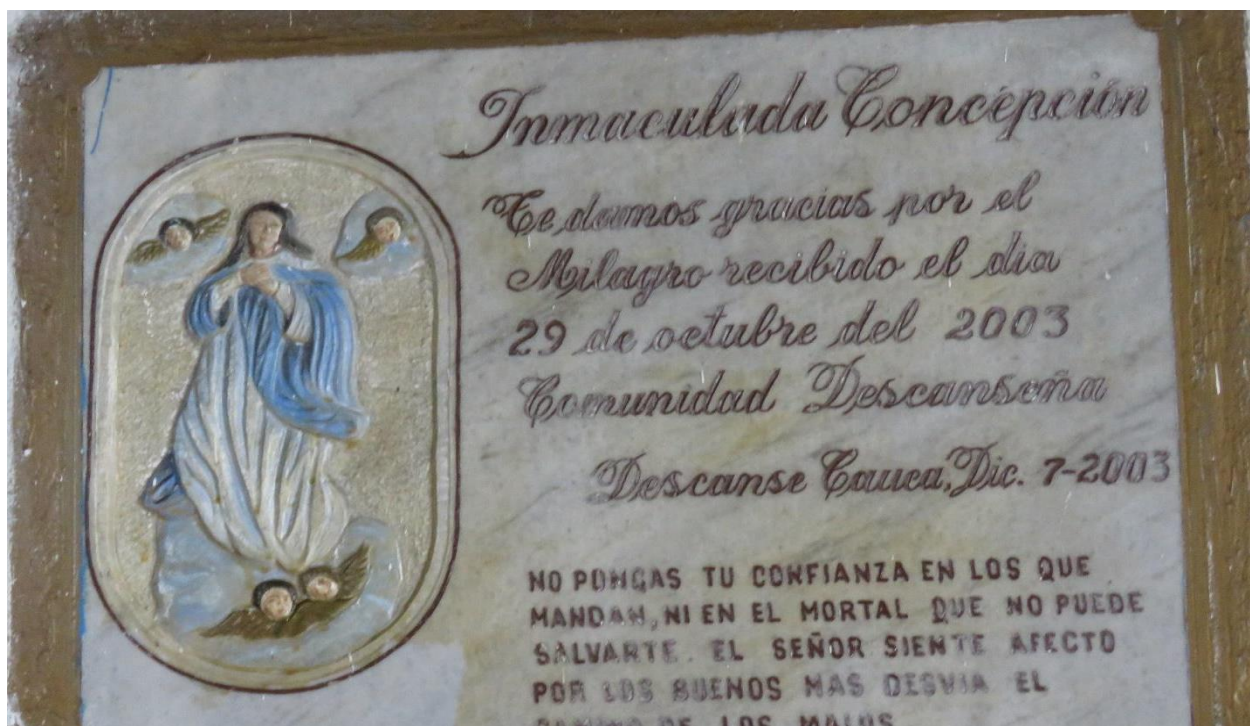 Inmaculada Concepción
Te damos gracias por el
Milagro recibido el dia
29 de octubre del 2003
Comunidad Descanseña
Descanse Cauca, Dic. 7-2003
NO PONGAS TU CONFIANZA EN LOS QUE
MANDAN, NI EN EL MORTAL QUE NO PUEDE
SALVARTE. EL SEÑOR SIENTE AFECTO
POR LOS BUENOS MAS DESVIA EL
CAMINO DE LOS MALOS